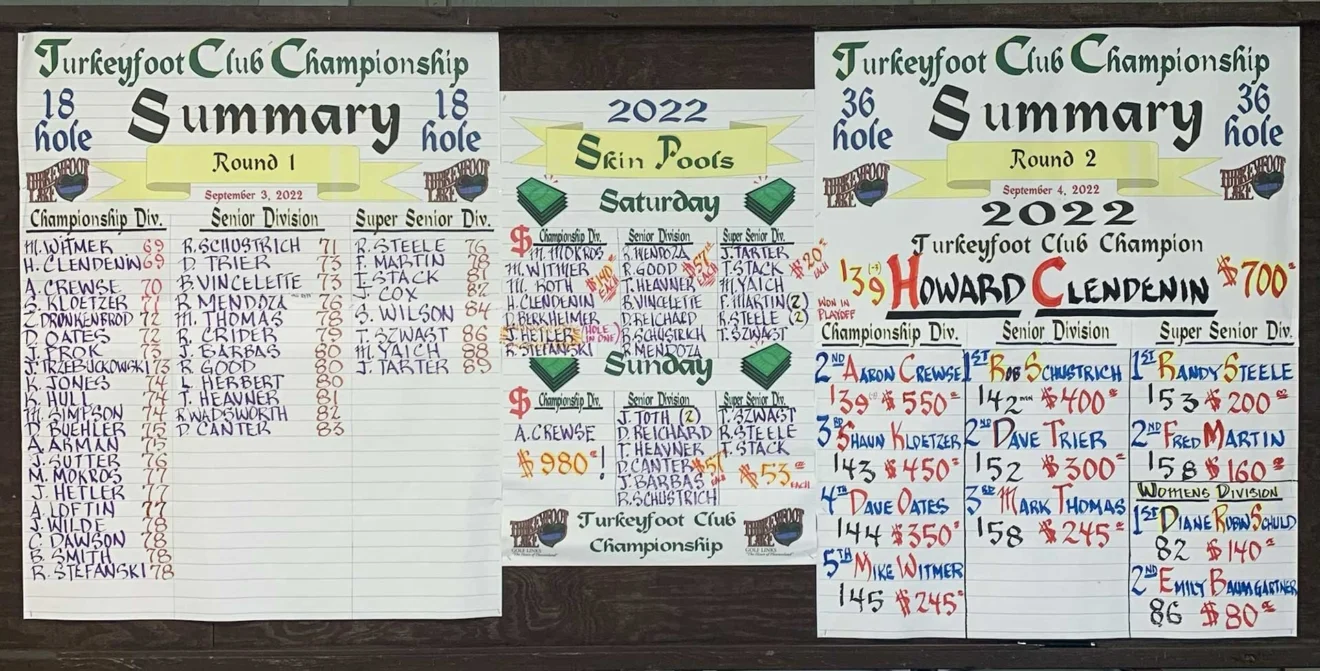 Turkeyfoot Club Championship
18 hole Summary 18 hole
Round 1
TURKEYFOOT LAKE
September 3, 2022
Championship Div. Senior Division Super Senior Div.
M. WITMER 69
H. CLENDENIN 69
A. CREWSE 70
S. KLOETZER 71
Z. DRONKENBROD 72
D. OATES 72
J. PROK 73
J. TRZEBUCKOWSKI 73
K. JONES 74
K. HULL 74
M. SIMPSON 74
D. BUEHLER 75
A. ARMAN 75
J. SUTTER 76
M. MOKROS 77
J. HETLER 77
A. LOFTIN 77
J. WILDE 78
C. DAWSON 78
B. SMITH 78
R. STEFANSKI 78
R. SCHUSTRICH 71
D. TRIER 73
B. VINCELETTE 73
R. MENDOZA 76
M. THOMAS 78
R. CRIDER 79
J. BARBAS 80
R. GOOD 80
L. HERBERT 80
T. HEAVNER 81
R. WADSWORTH 82
D. CANTER 83
R. STEELE 76
F. MARTIN 78
T. STACK 81
J. COX 82
S. WILSON 84
T. SZWAST 86
M. YAICH 88
J. TARTER 89
2022
Skin Pools
Saturday
$ Championship Div. Senior Division Super Senior Div.
M. MOKROS
M. WITMER
M. ROTH
H. CLENDENIN
D. BERKHEIMER
J. HETLER (HOLE IN ONE)
R. STEFANSKI
$140 EACH
R. MENDOZA
R. GOOD
T. HEAVNER
B. VINCELETTE
D. REICHARD
R. SCHUSTRICH
R. MENDOZA
$57 EACH
J. TARTER
T. STACK
M. YAICH
F. MARTIN (2)
R. STEELE (2)
T. SZWAST
$20 EACH
Sunday
$ Championship Div. Senior Division Super Senior Div.
A. CREWSE
$980!
J. TOTH (2)
D. REICHARD
T. HEAVNER
D. CANTER
J. BARBAS
R. SCHUSTRICH
$57 EACH
T. SZWAST
R. STEELE
T. STACK
$53 EACH
TURKEYFOOT LAKE
GOLF LINKS
Turkeyfoot Club
Championship
TURKEYFOOT LAKE
GOLF LINKS
Turkeyfoot Club Championship
36 hole Summary 36 hole
Round 2
TURKEYFOOT LAKE
September 4, 2022
2022
Turkeyfoot Club Champion
139 HOWARD CLENDENIN $700
WON IN PLAYOFF
Championship Div. Senior Division Super Senior Div.
2ND AARON CREWSE
139 $550
3RD SHAUN KLOETZER
143 $450
4TH DAVE OATES
144 $350
5TH MIKE WITMER
145 $245
1ST ROB SCHUSTRICH
142 $400
2ND DAVE TRIER
152 $300
3RD MARK THOMAS
158 $245
1ST RANDY STEELE
153 $200
2ND FRED MARTIN
158 $160
WOMENS DIVISION
1ST DIANE RUBIN SCHULD
82 $140
2ND EMILY BAUMGARTNER
86 $80